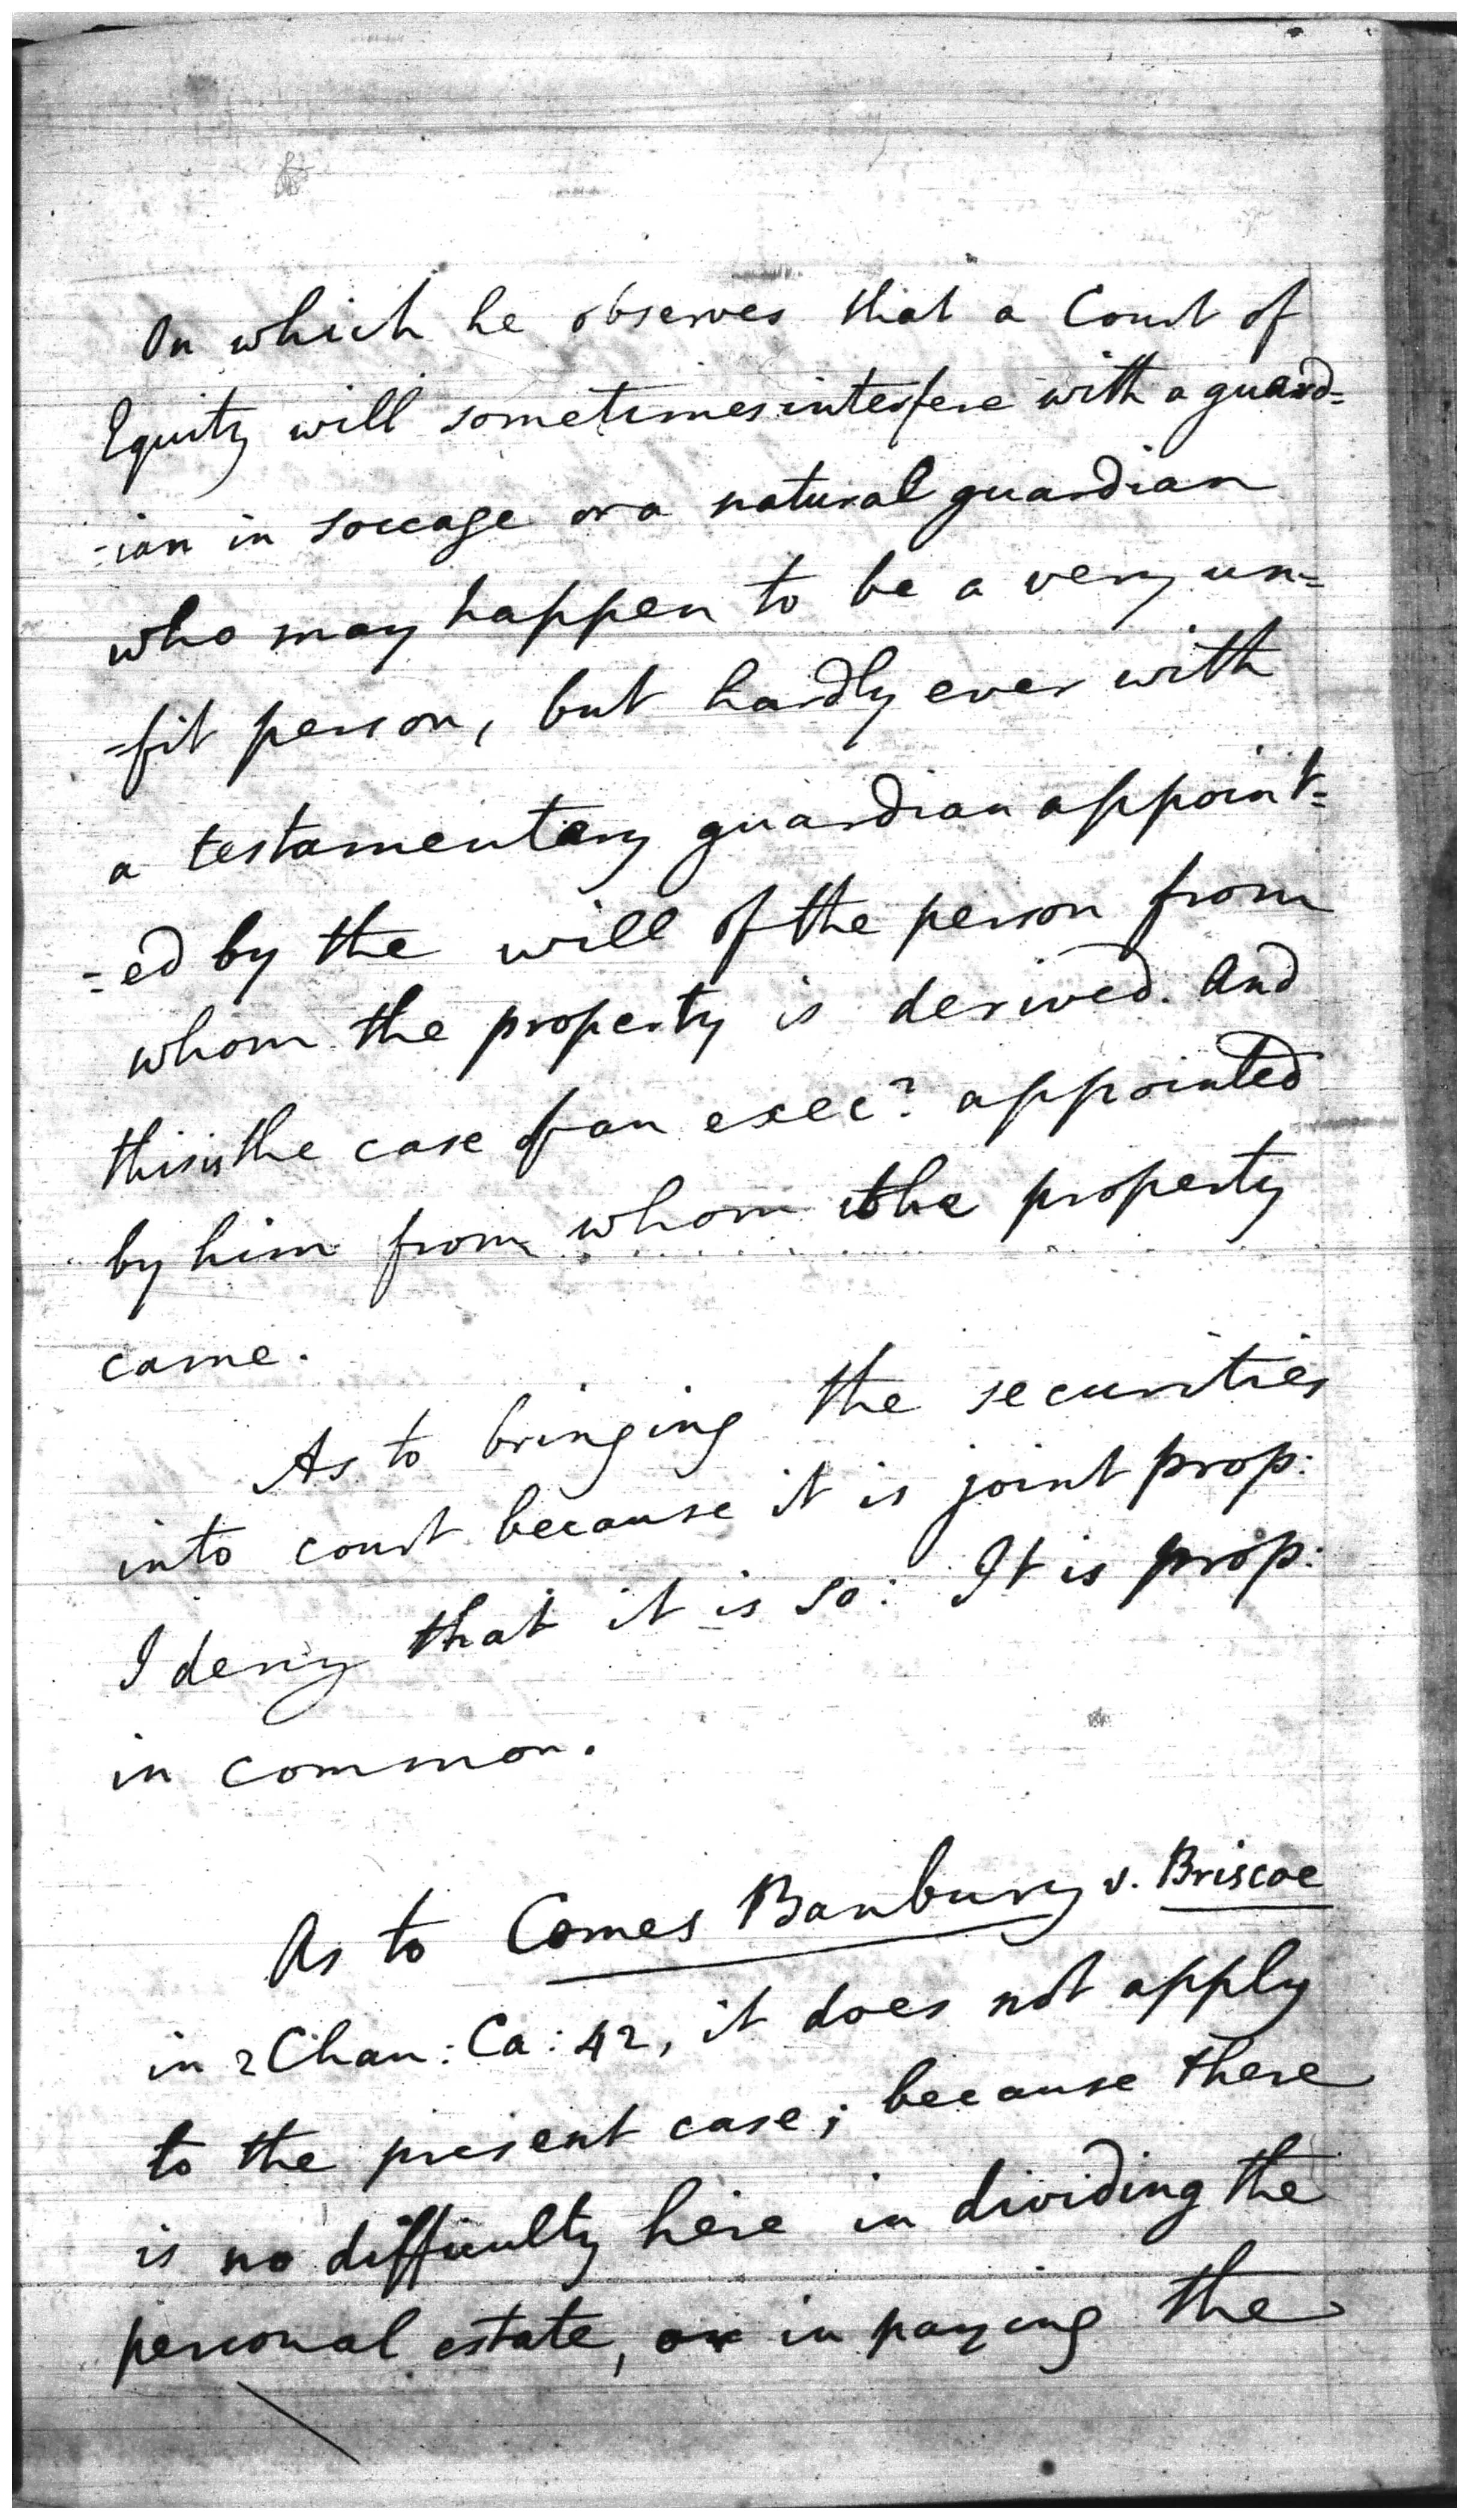 On which he observes that a Court of
Equity will sometimes interfere with a guard=
-ian in soccage or a natural guardian
who may happen to be a very un=
=fit person, but hardly ever with
a testamentary guardian appoint=
=ed by the will of the person from
whom the property is derived. And
this is the case of an exec.r appointed
by him from whom the property
came.
As to bringing the securities
into court because it is joint prop:
I deny that it is so: It is prop:
in common.
As to Comes Banbury v. Briscoe
in 2 Chan: Ca: 42, it does not apply
to the present case; because there
is no difficulty here in dividing the
personal estate, or in paying the